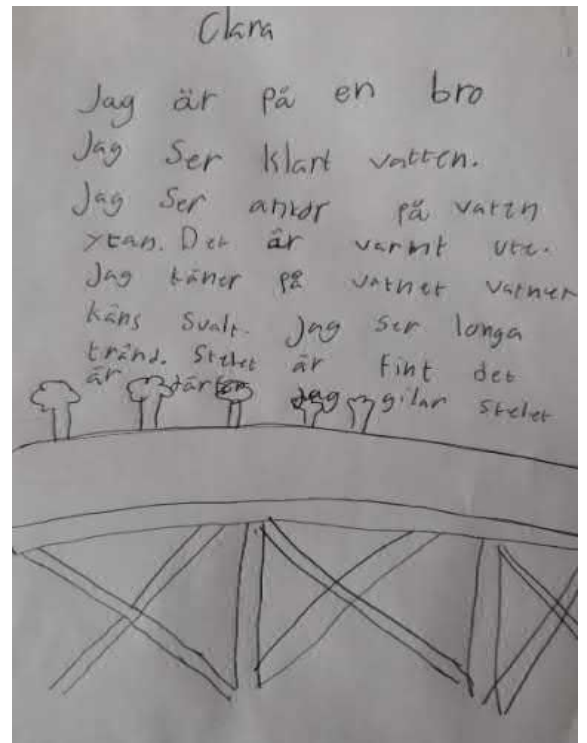 Clara
Jag är på en bro
Jag ser klart vatten.
Jag ser ankor på vaten
ytan. Det är varmt ute.
Jag käner på vatnet vatnet
käns svalt. Jag ser longa
tränd. Stelet är fint det
är Jag gilar stelet